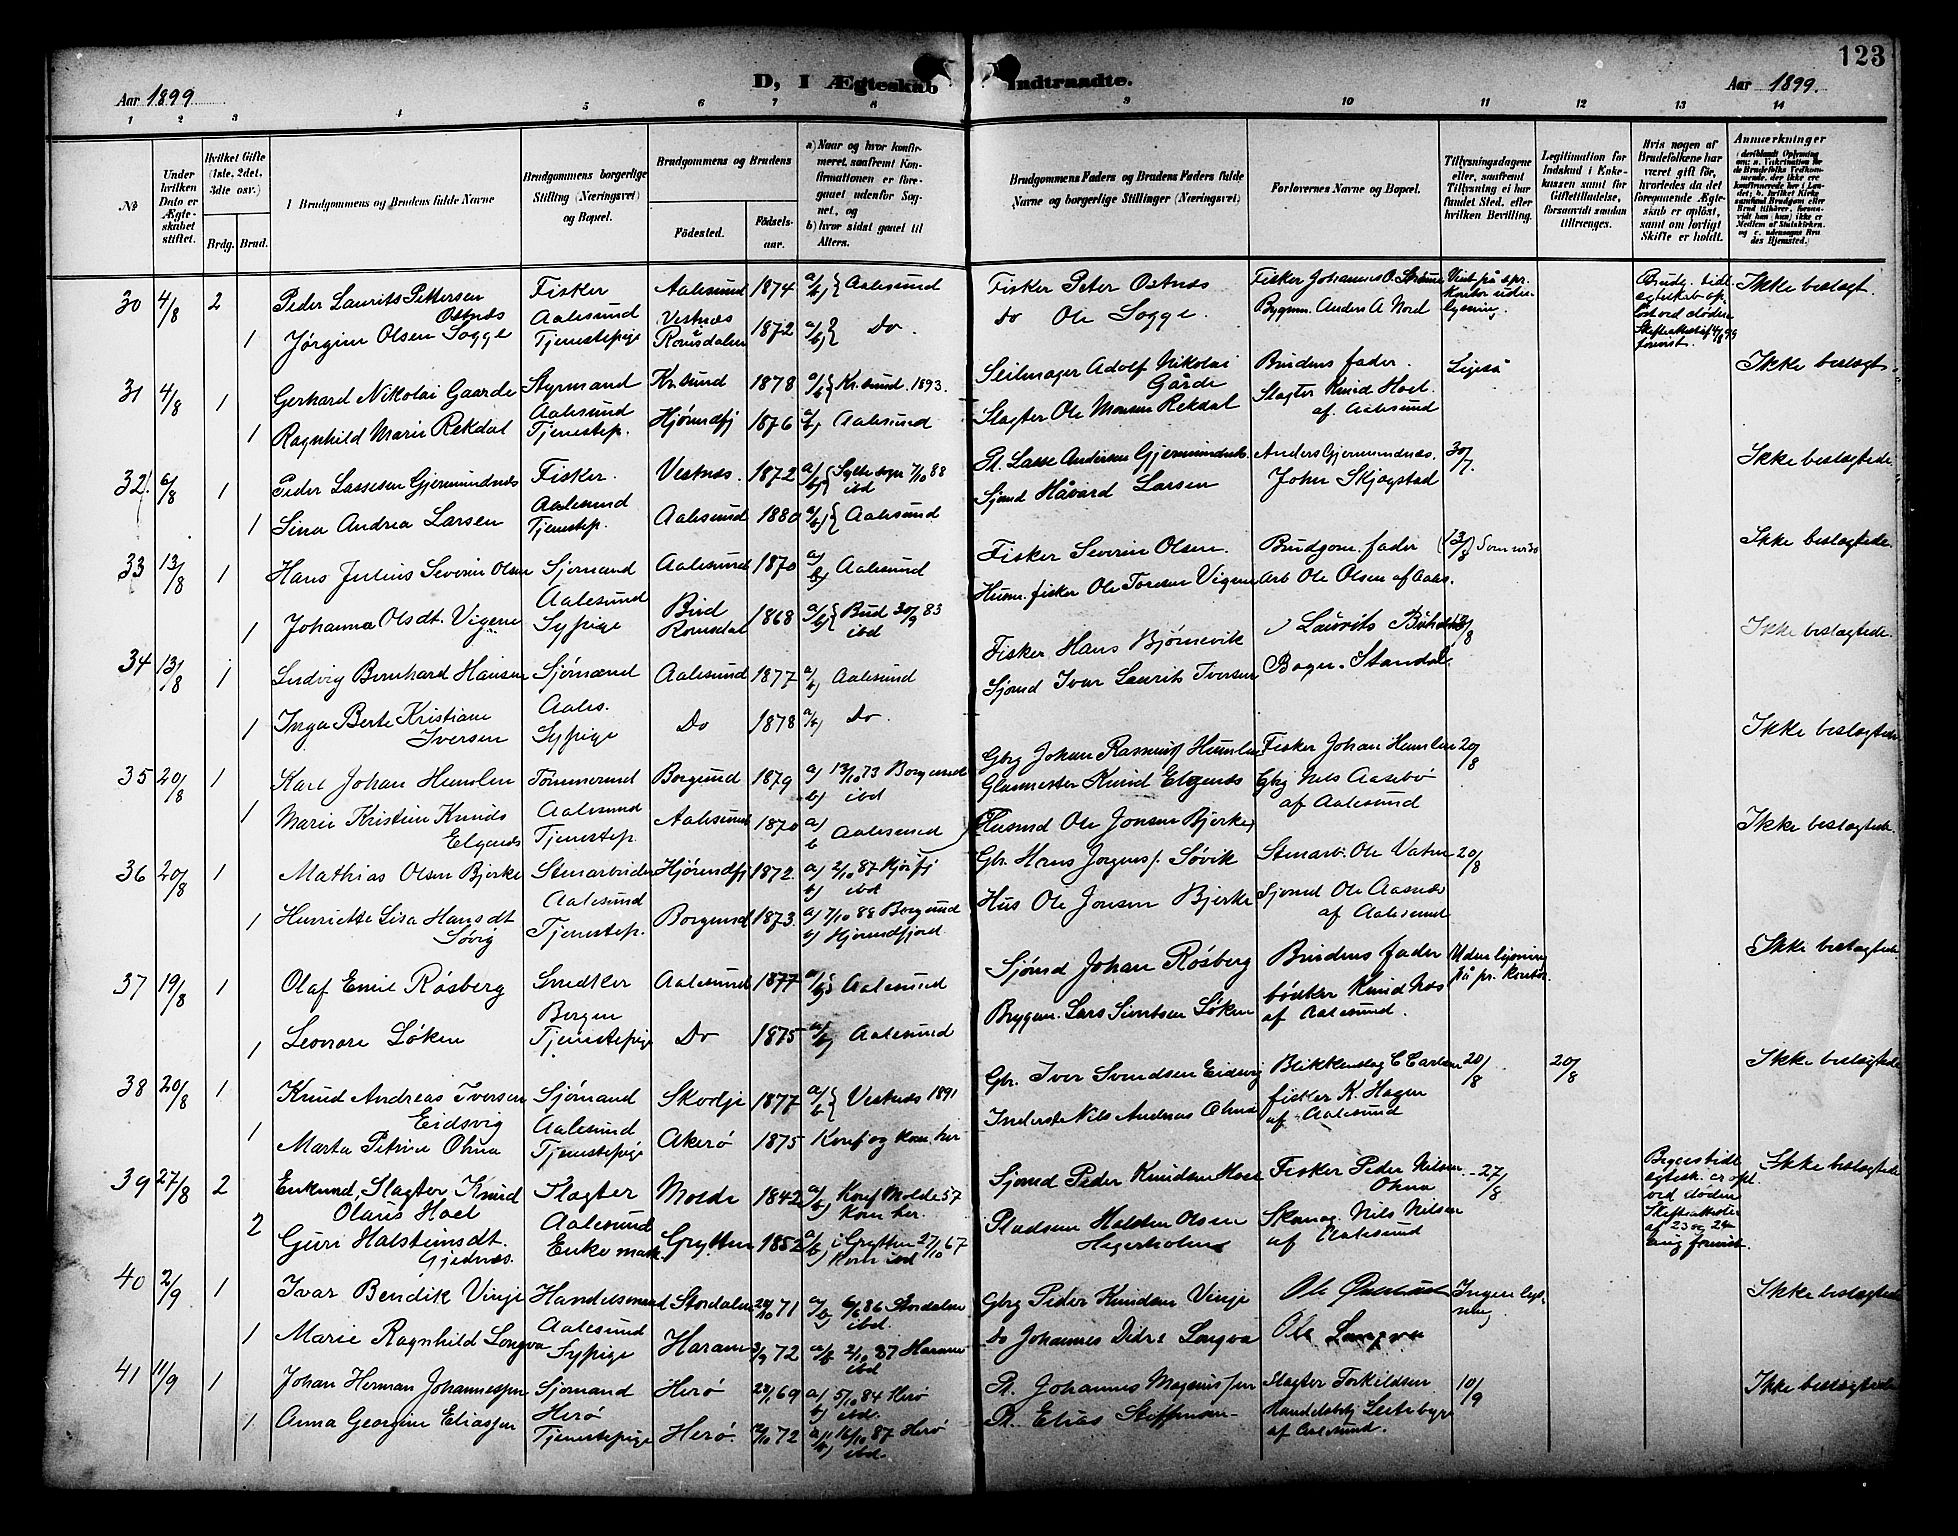 123
D, I Ægteskab Indtraadte.
Aar 1899
Aar 1899.
1 2 3 4 5 6 7 8 9 10 11 12 13 14
№
Under hvilken Dato er Ægteskabet stiftet.
Hvilket Gifte (1ste, 2det, 3die osv.)
Brdg. Brud.
Brudgommens og Brudens fulde Navne
Brudgommens borgerlige Stilling (Næringsvei) og Bopæl.
Brudgommens og Brudens
Fødested.
Fødselsaar.
a) Naar og hvor konfirmeret, saafremt Konfirmationen er foregaaet udenfor Sognet, og
b) hvor sidst gaaet til Alters.
Brudgommens Faders og Brudens Faders fulde Navne og borgerlige Stillinger (Næringsvei)
Forlovernes Navne og Bopæl.
Tillysningsdagene eller, saafremt Tillysning ei har fundet Sted, efter hvilken Bevilling.
Legitimation for Indskud i Enkekassen samt for Giftetilladelse, forsaavidt saadan tiltrænges.
Hvis nogen af Brudefolkene har været gift før, hvorledes da det foregaaende Ægteskab er opløst, samt om lovligt Skifte er holdt.
Anmærkninger
30 4/8 2 Peder Laurits Pettersen Ostnes Fisker Aalesund Aalesund 1874 a/b) Aalesund Fisker Peter Ostnes Fisker Johannes O. Ikke beslægt.
1 Jørgine Olsen Sogge Tjenestepige Vestnæs Romsdalen 1872 a/b) Do. Do Ole Sogge. Bygm. Anders A Nord
31 4/8 1 Gerhard Nikolai Gaarde Styrmand Aalesund Kr.sund 1878 a/b Kr.sund. 1893. Seilmager Adolf Nikolai Gårde Brudens fader. Ligeså Ikke beslægt.
1 Ragnhild Marie Rekdal Tjenestep. Hjørundfj 1876 a/b) Aalesund Slagter Ole Monsen Rekdal Slagter Knud Hoel af Aalesund
32. 6/8 1 Peder Lassesen Gjermundnæs Fisker. Aalesund Vestnæs. 1872 a/b) Sylte sogn 7/10 88 ibd Lasse Andersen Gjermundnæs. Anders Gjermundnæs. 30/7. Ikke beslægtede
1 Sina Andrea Larsen Tjenestep. Aalesund 1880 a/b) Aalesund Sjømd Håvard Larsen John Skjegstad
33 13/8 1 Hans Julius Severin Olsen Sjømand Aalesund Aalesund 1870 a/b) Aalesund Fisker Severin Olsen. Brudgom. fader 13/8 Ikke beslægtede.
1 Johanna Olsdt. Vigene Sypige Bud Romsdal 1868 a/b) Bud 30/9 83 ibd Husm. fisker Ole Toresen Vigene Arb Ole Olsen af Aales.
34 13/8 1 Ludvig Bernhard Hansen Sjømand Aales. Aalesund 1877 a/b) Aalesund Fisker Hans Bjørnevik Laurits 13/8 Ikke beslægtede.
1 Inga Berte Kristiane Iversen Sypige Do 1878 a/b) Do. Sjømd Ivar Laurits Iversen Bager Standal
35 20/8 1 Karl Johan Humlen Tømmermd Aalesund Borgund 1879 a) Borgund b) ibd Gbrg Johan Rasmus Humlen Fisker Johan Humlen 20/8 Ikke beslægtede
1 Marie Kristine Knuds Elgenes Tjenestep Aalesund 1870 a/b Aalesund Glasmester Knud Elgenes Gbrg Nils Aasebø af Aalesund
Husmd Ole Jonsen Bjerke
36 20/8 1 Mathias Olsen Bjerke Stenarbeider Aalesund Hjørundfj 1872. a) 2/10 87 Hjør.fj b) ibd Gbr. Hans Jørgens. Søvik Stenarb. Ole Vatne 20/8 Ikke beslægtede.
1 Henriette Lisa Hansdt Søvig Tjenestep. Borgund 1873. a) 7/10 88 Borgund b) Hjørundfjord. Hus Ole Jonsen Bjerke Sjømd Ole Aasnæs af Aalesund
37 19/8 1 Olaf Emil Røsberg Snedker Bergen Aalesund 1877 a/b Aalesund Sjømd Johan Røsberg Brudens fader Uden lysning på pr. kontor Ikke beslægtede
1 Leonore Løken Tjenestepige Do 1875 a/b Aalesund Brygm. Lars Simtsen Løken bødker Knud Næs af Aalesund.
38 20/8 1 Knud Andreas Iversen Eidsvig Sjømand Aalesund Skodje 1877 a/b Vestnæs 1891 Gbr. Iver Svendsen Eidsvig Blikkenslag C Carlsen 20/8 20/8 Ikke beslægtede
1 Marta Petrine Ohna Tjenestepige Akerø 1875 Konf og kom. her Inderste Nils Andreas Ohna fisker K. Hagen af Aalesund
39 27/8 2 Enkemd, Slagter Knud Olaus Hoel Slagter Aalesund Molde 1842 a/b Konf Molde 57 Kom her. Sjømd Peder Knudsen Moes Fisker Peder Nilsen Ohna 27/8 Ikke beslægtede
2 Guri Halsteinsdt. Gjednæs. Enke Grytten 1852 a/b i Grytten 27/10 67 Kom ibd Pladsm Halsten Olsen Hegerholm Skomag. Nils Nilsen af Aalesund
40 2/9 1 Ivar Bendik Vinje Handelsmand Aalesund Stordalen 20/10 71 a/b 6/6 86 Stordalen ibd. Gbrg Peder Knudsen Vinje Ole Ingen lysning Ikke beslægtede
1 Marie Ragnhild Longva Sypige Haram 3/9 72 a/b 2/10 87 Haram ibd Do Johannes Didr. Longva Ole Longva
41 11/9 1 Johan Herman Johannessen Sjømand Herø Herø 20/1 69 a) 5/10 84 Herø b) ibd. Johannes Magnus/en Slagter Torkildsen 10/9 Ikke beslægtede
1 Anna Georgine Eliassen Tjenestepige Herø. 72 a/b) 16/10 87 Herø ibd. Elias Steffensen Handelsbetj Leitebyge af Aalesund.